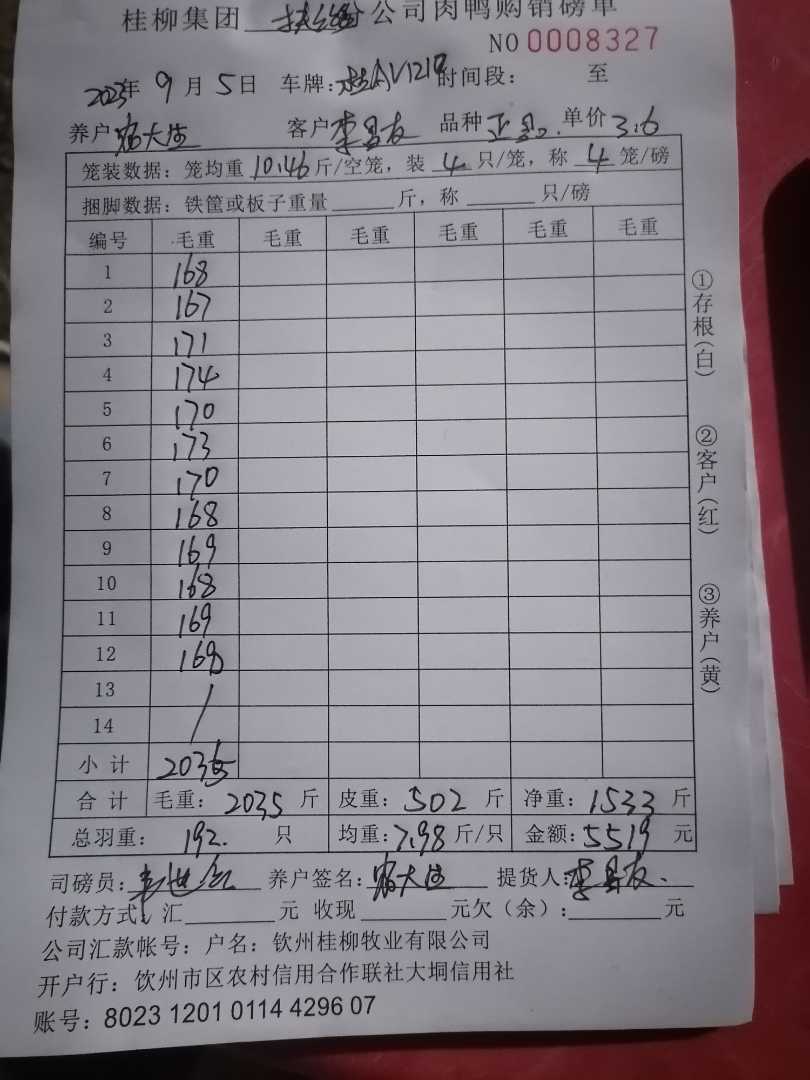 桂柳集团 扶绥 公司肉鸭购销磅单
NO 0008327
2023年 9 月 5 日 车牌: 桂AV121 时间段: 至
养户 大 客户 李昌友 品种 正 单价 3.6
笼装数据: 笼均重 10.46 斤/空笼, 装 4 只/笼, 称 4 笼/磅
捆脚数据: 铁筐或板子重量 斤, 称 只/磅
编号 毛重 毛重 毛重 毛重 毛重 毛重
1 168
2 167
3 171
4 174
5 170
6 173
7 170
8 168
9 169
10 168
11 169
12 168
13 /
14
小计 2035
合计 毛重: 2035 斤 皮重: 502 斤 净重: 1533 斤
总羽重: 192. 只 均重: 7.98 斤/只 金额: 5519 元
司磅员: 养户签名: 大 提货人: 李昌友.
付款方式: 汇 元 收现 元欠(余): 元
公司汇款帐号: 户名: 钦州桂柳牧业有限公司
开户行: 饮州市区农村信用合作联社大垌信用社
账号: 8023 1201 0114 4296 07
①存根(白)
②客户(红)
③养户(黄)